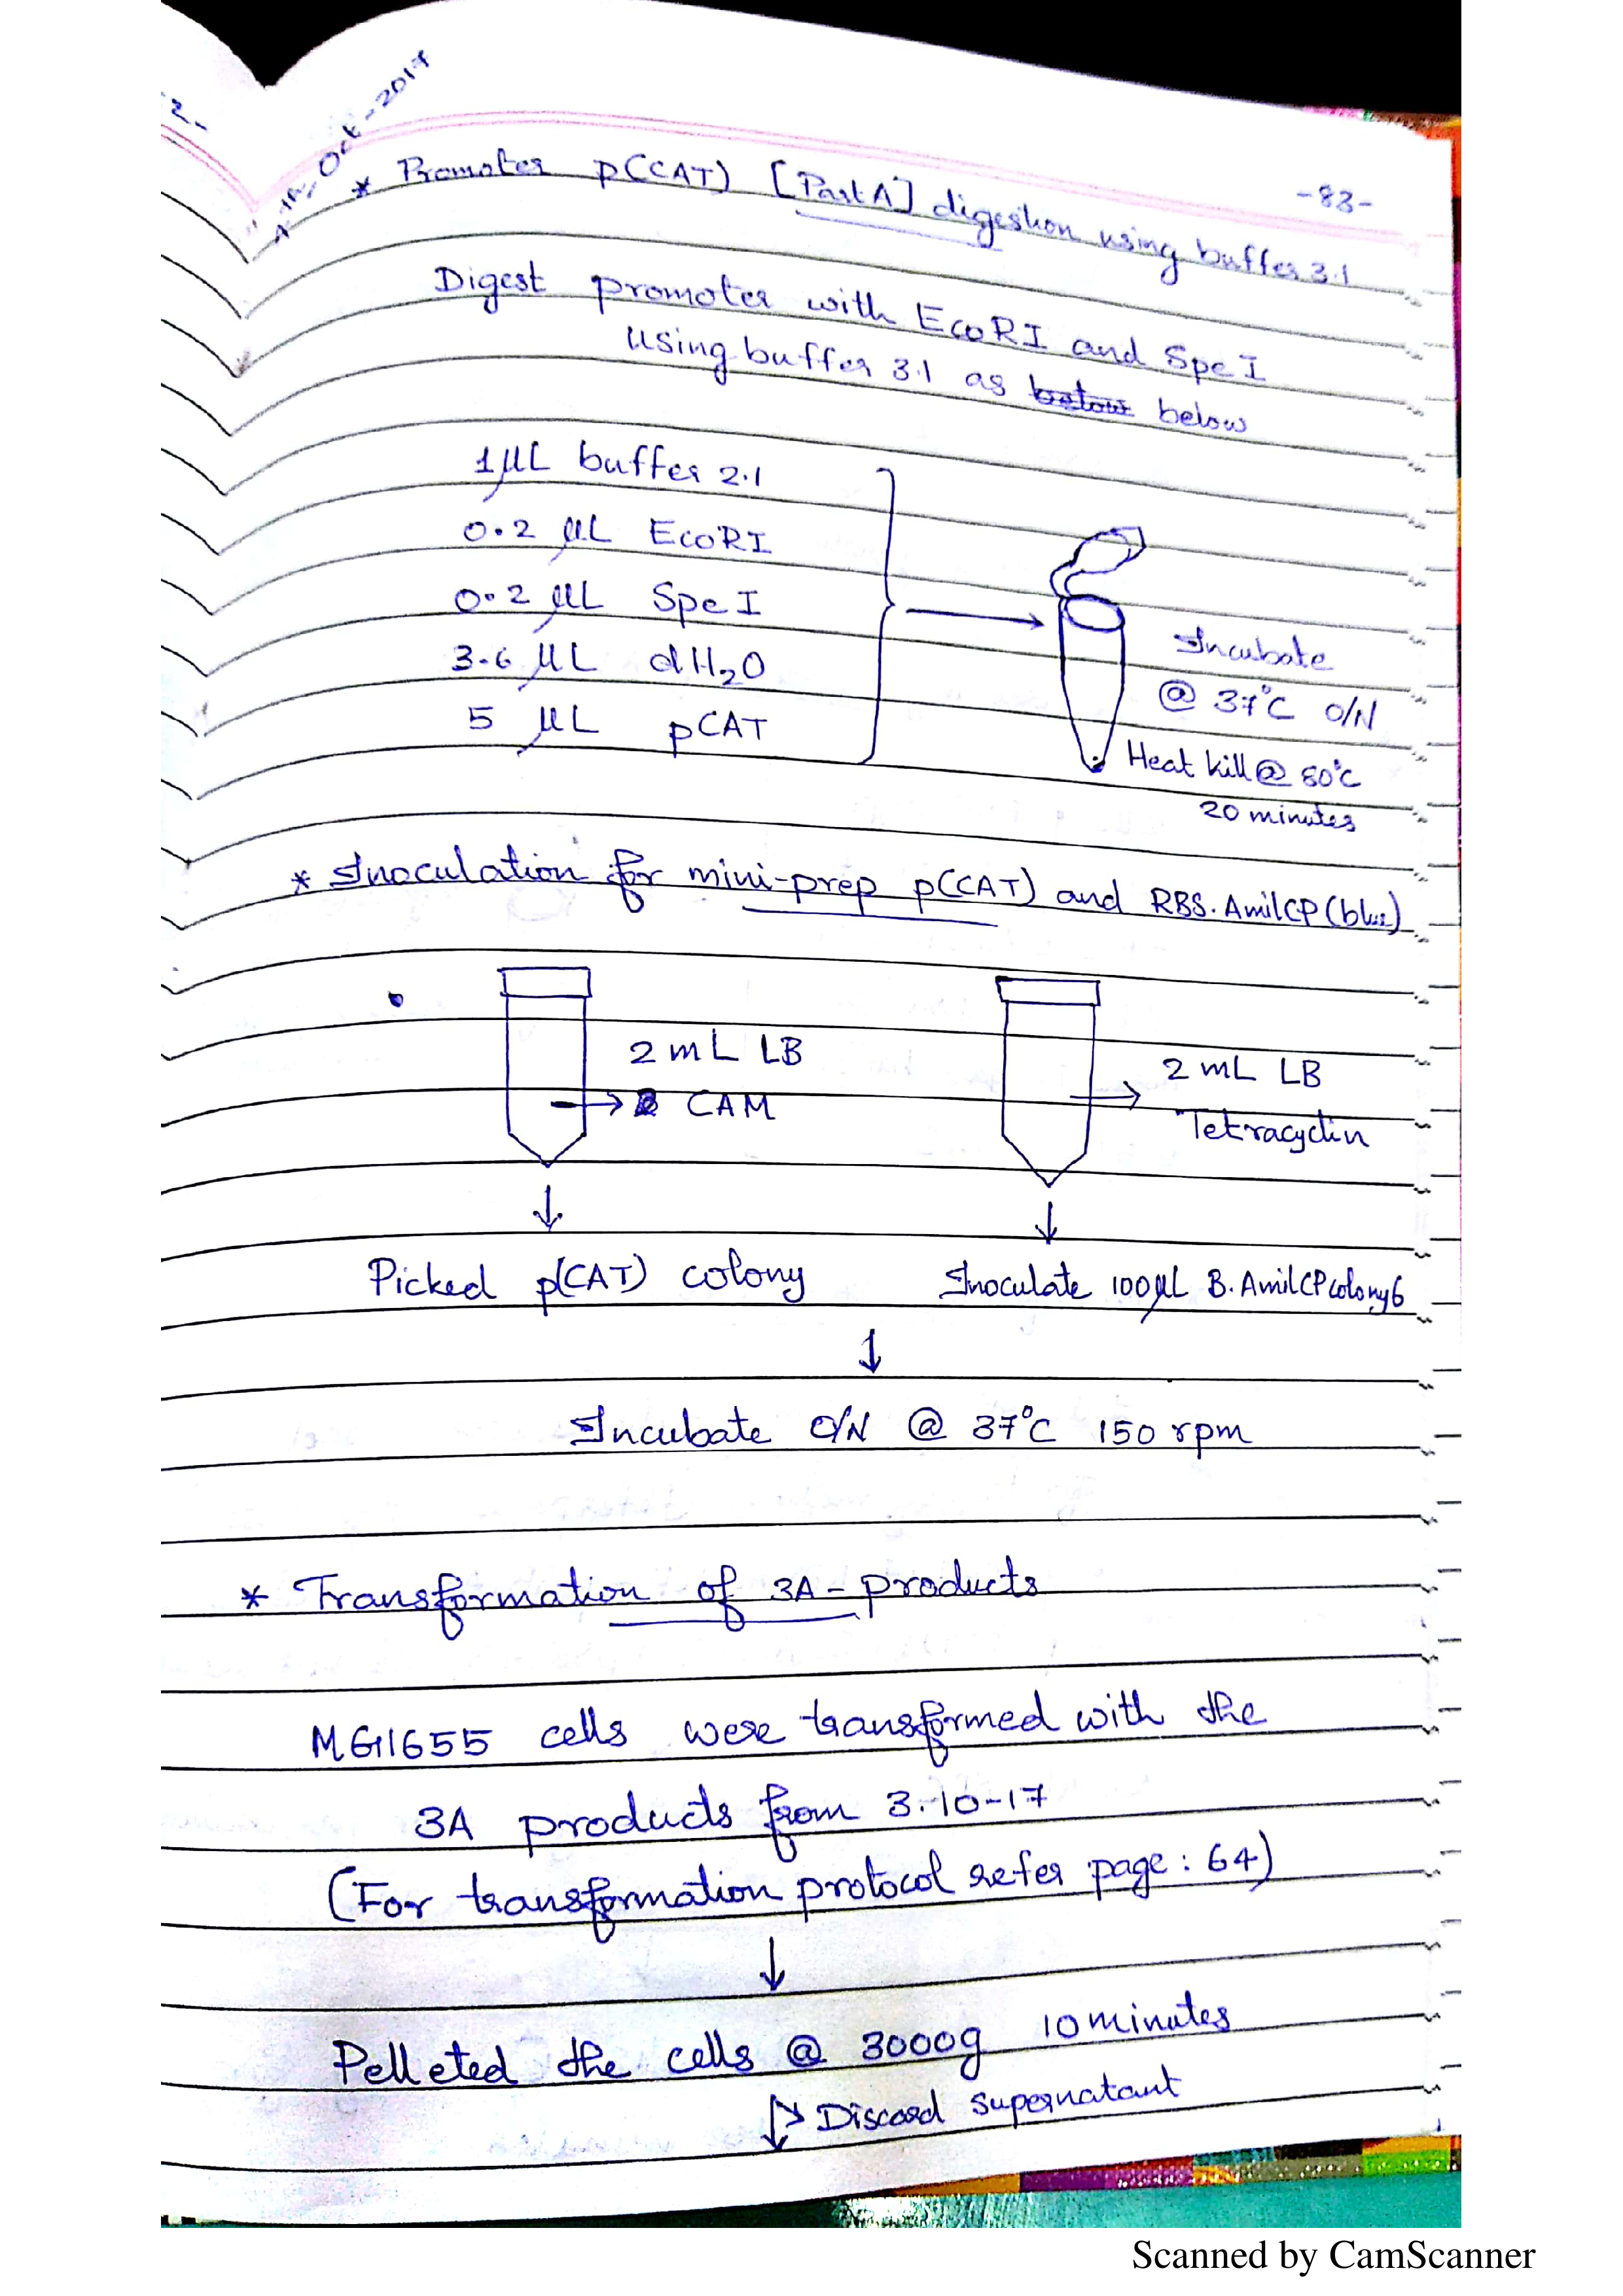 2-
4th, Oct-2017
-83-
* Promoter p(CAT) [Part A] digestion using buffer 3.1
Digest promoter with EcoRI and SpeI
using buffer 3.1 as below below
1 µL buffer 2.1
0.2 µL EcoRI
0.2 µL SpeI
3.6 µL dH₂O
5 µL pCAT
Incubate
@ 37°C O/N
Heat kill @ 80°C
20 minutes
* Inoculation for mini-prep p(CAT) and RBS.AmilCP(blue)
2 mL LB
CAM
2 mL LB
Tetracyclin
Picked p(CAT) colony
Inoculate 100µL B.AmilCP colony6
Incubate O/N @ 37°C 150 rpm
* Transformation of 3A-products
MG1655 cells were transformed with the
3A products from 3.10-17
(For transformation protocol refer page: 64)
Pelleted the cells @ 3000g 10 minutes
Discard supernatant
Scanned by CamScanner